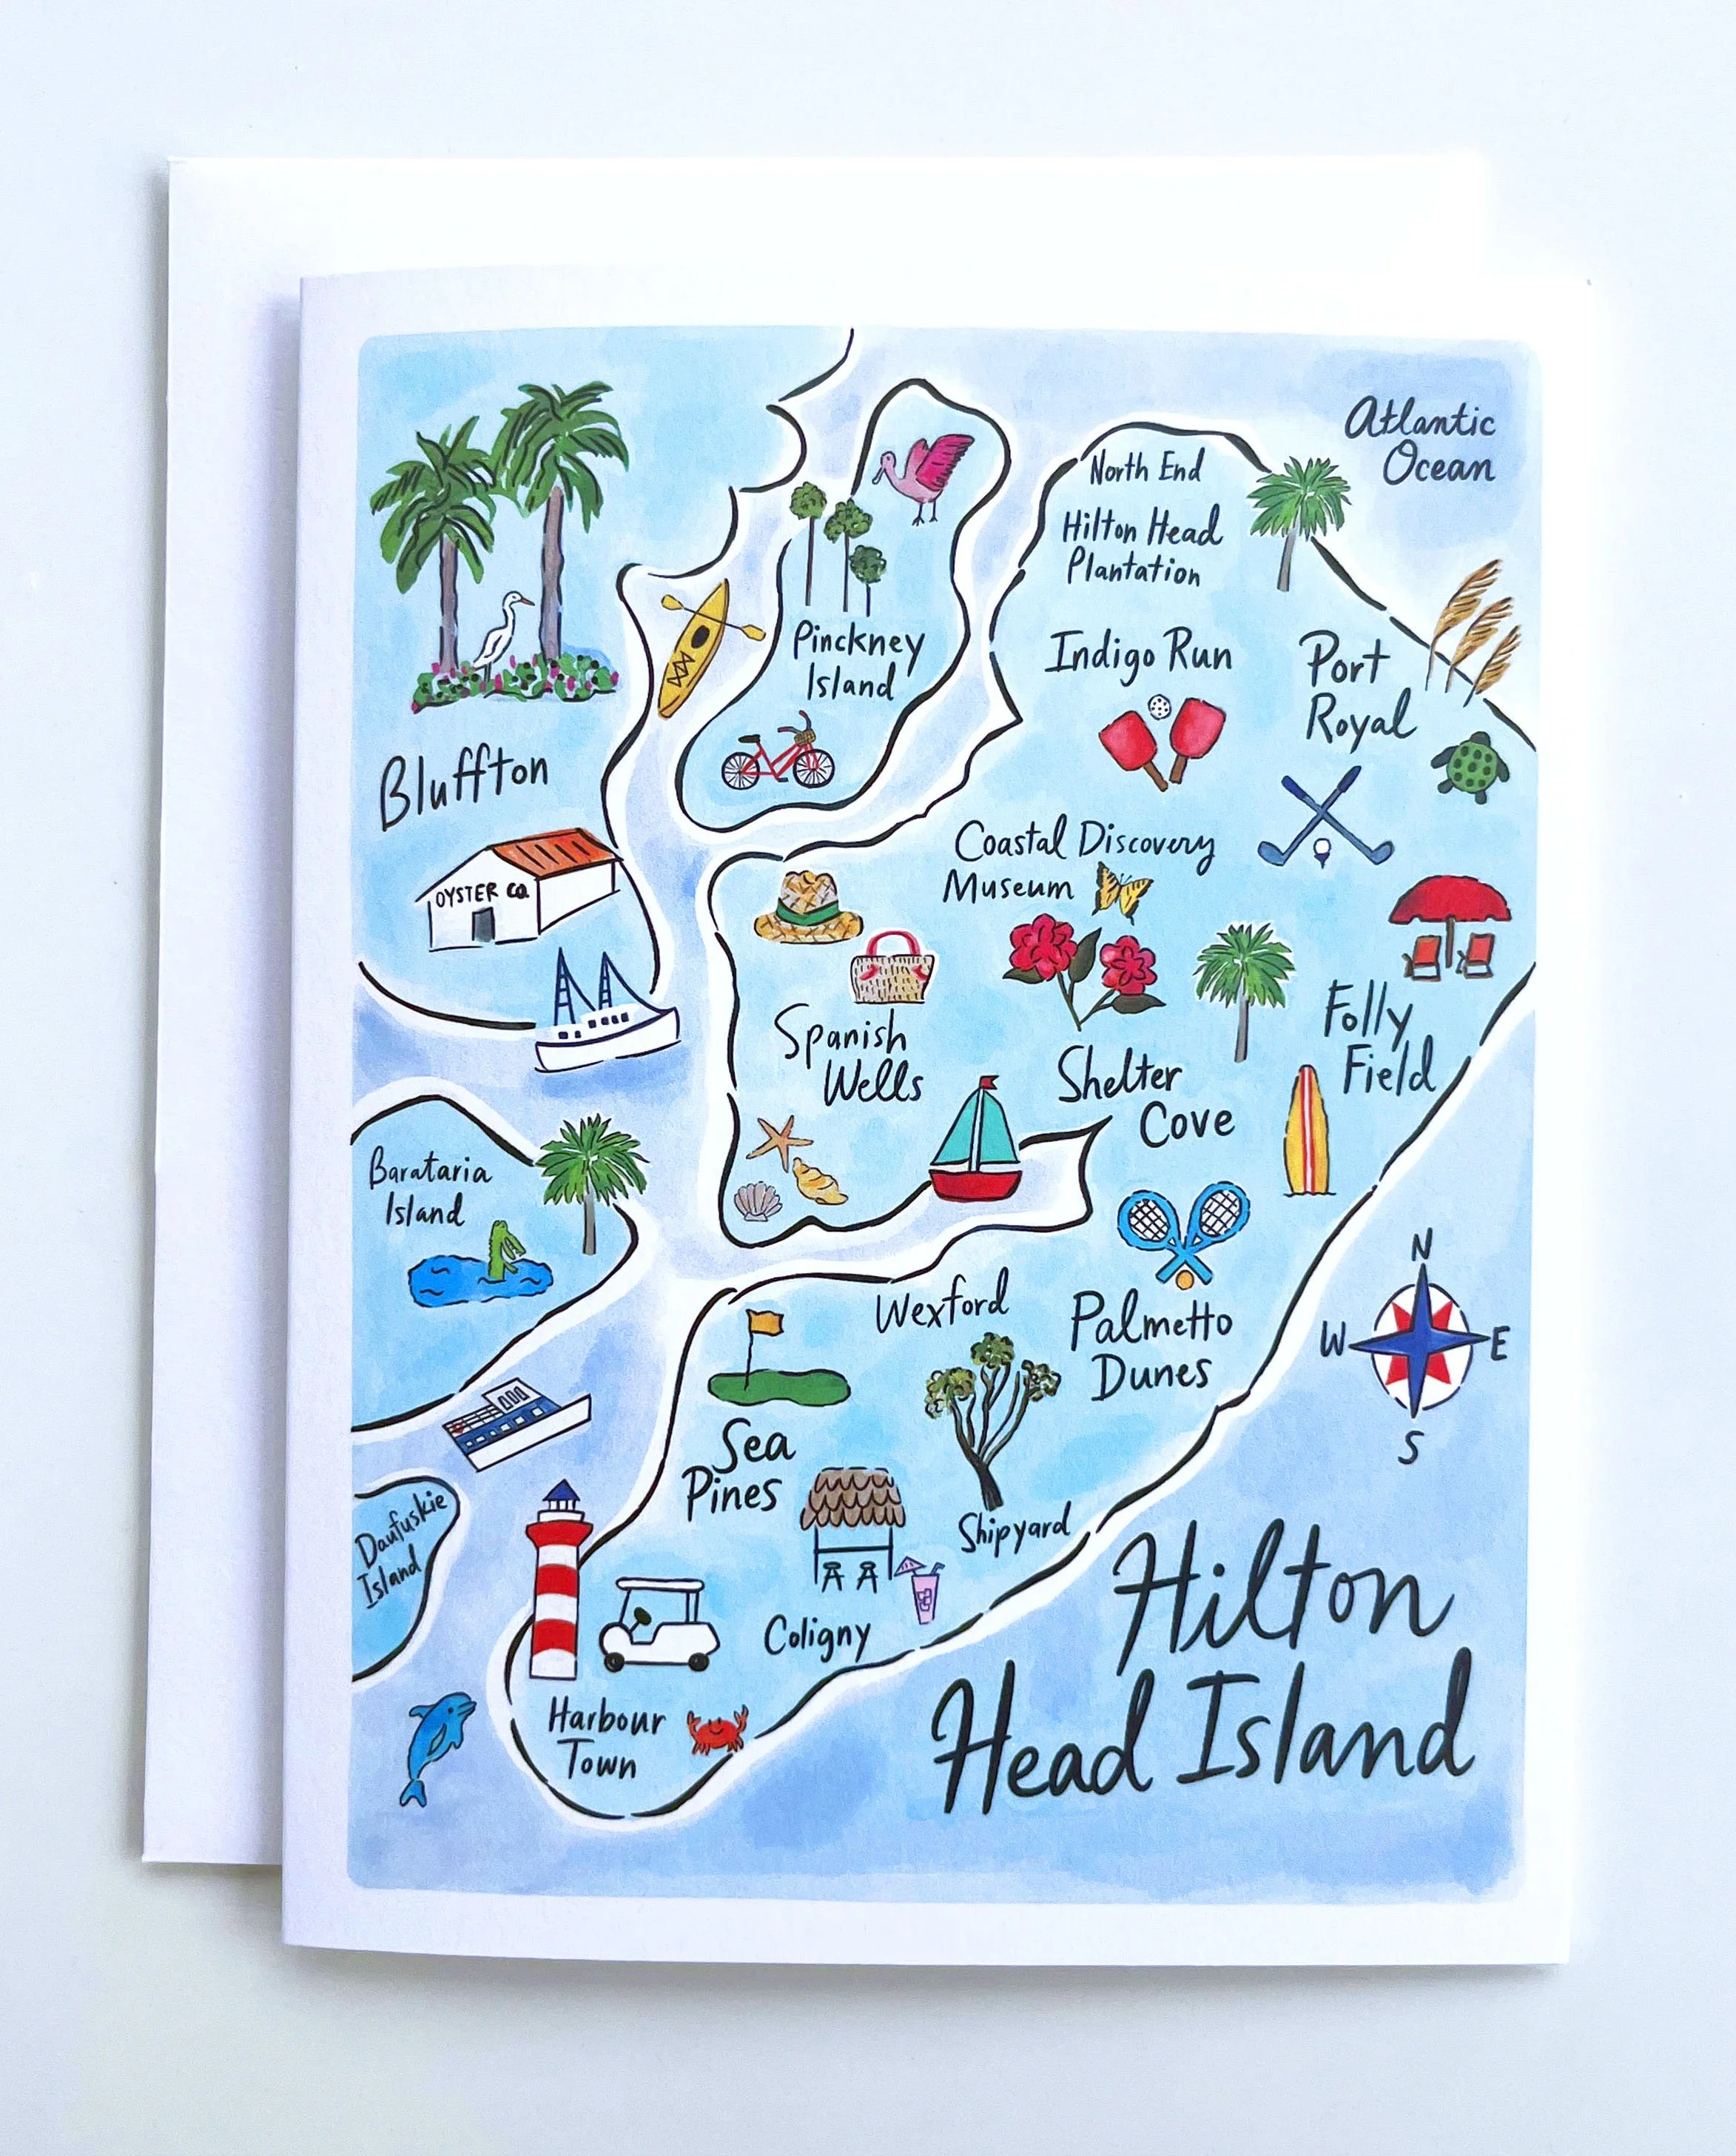 Atlantic
Ocean
North End
Hilton Head
Plantation
Pinckney
Island
Indigo Run
Port
Royal
Bluffton
OYSTER CO.
Coastal Discovery
Museum
Spanish
Wells
Folly
Field
Shelter
Cove
Barataria
Island
N
W
E
S
Wexford
Palmetto
Dunes
Sea
Pines
Daufuskie
Island
Shipyard
Coligny
Harbour
Town
Hilton
Head Island